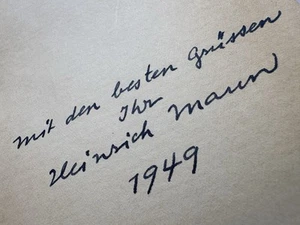 mit den besten Grüssen
Ihr
Heinrich Mann
1949